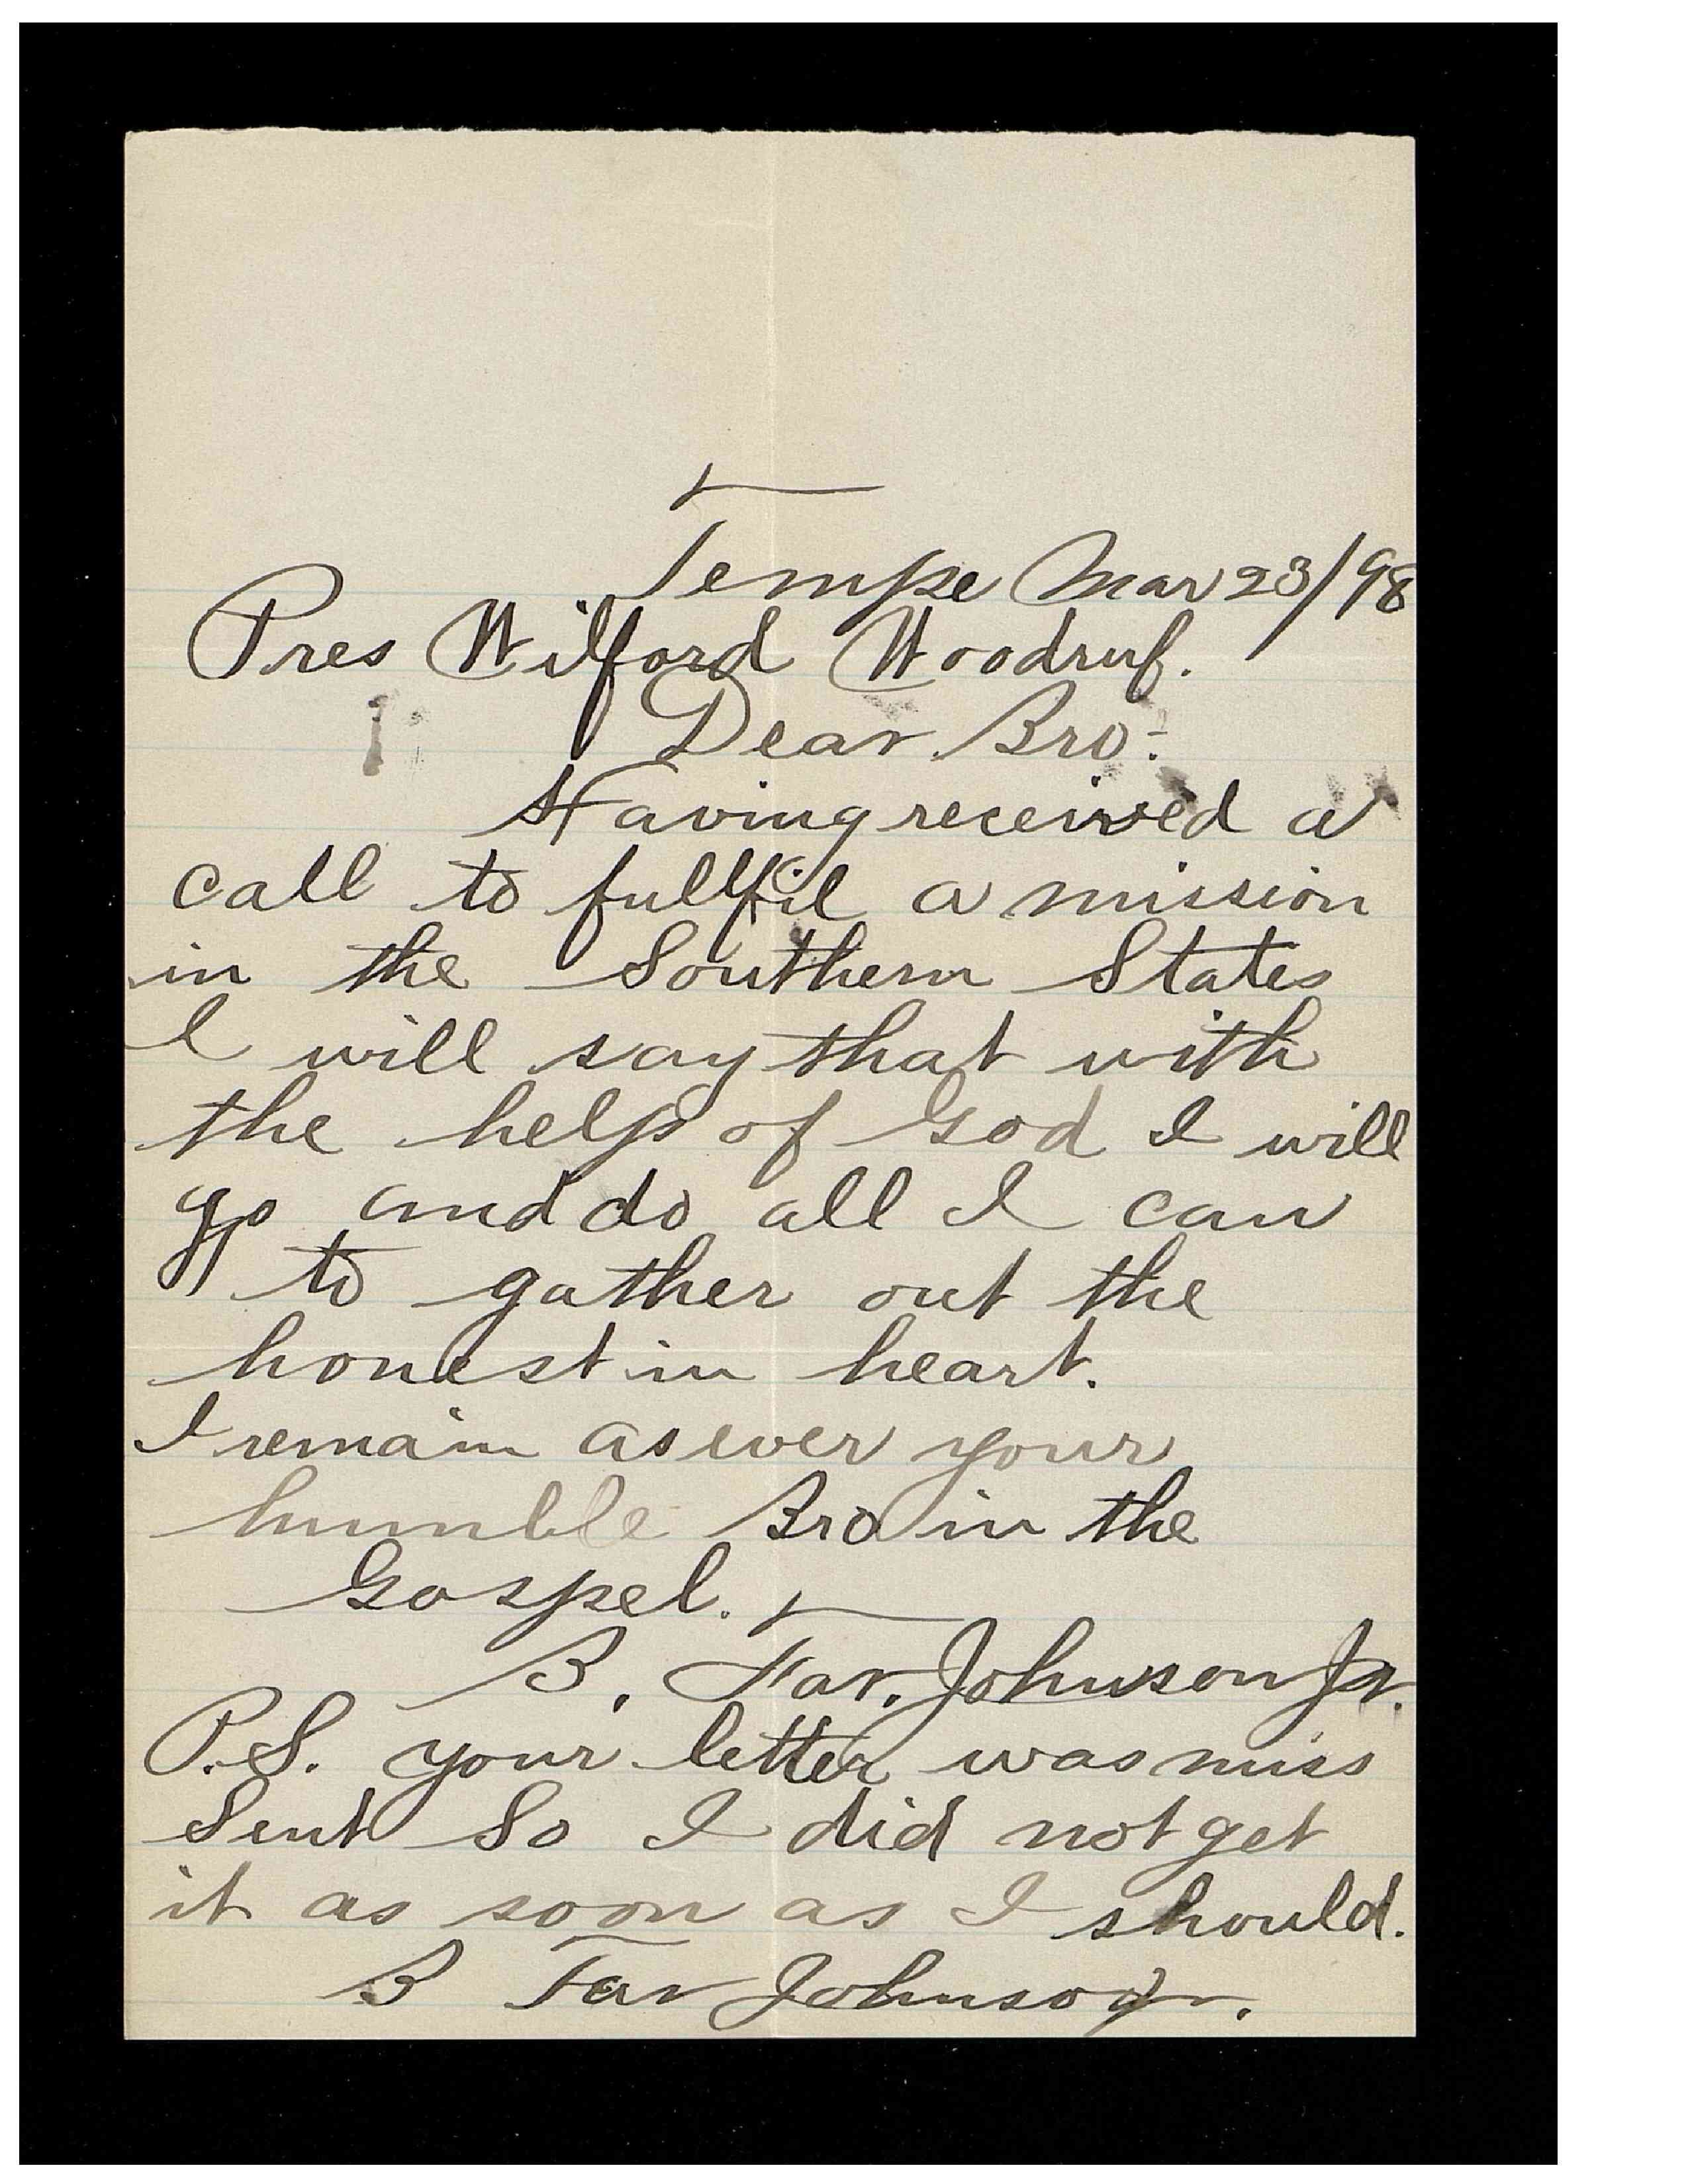 Tempe Mar 23/98
Pres Wilford Woodruf.
Dear Bro:
Having received a
call to fullfil a mission
in the Southern States
I will say that with
the help of God I will
go and do all I can
to gather out the
honest in heart.
I remain as ever your
humble Bro in the
Gospel.
B. Far. Johnson Jr.
P.S. your letter was miss
sent So I did not get
it as soon as I should.
B Far Johnson Jr.